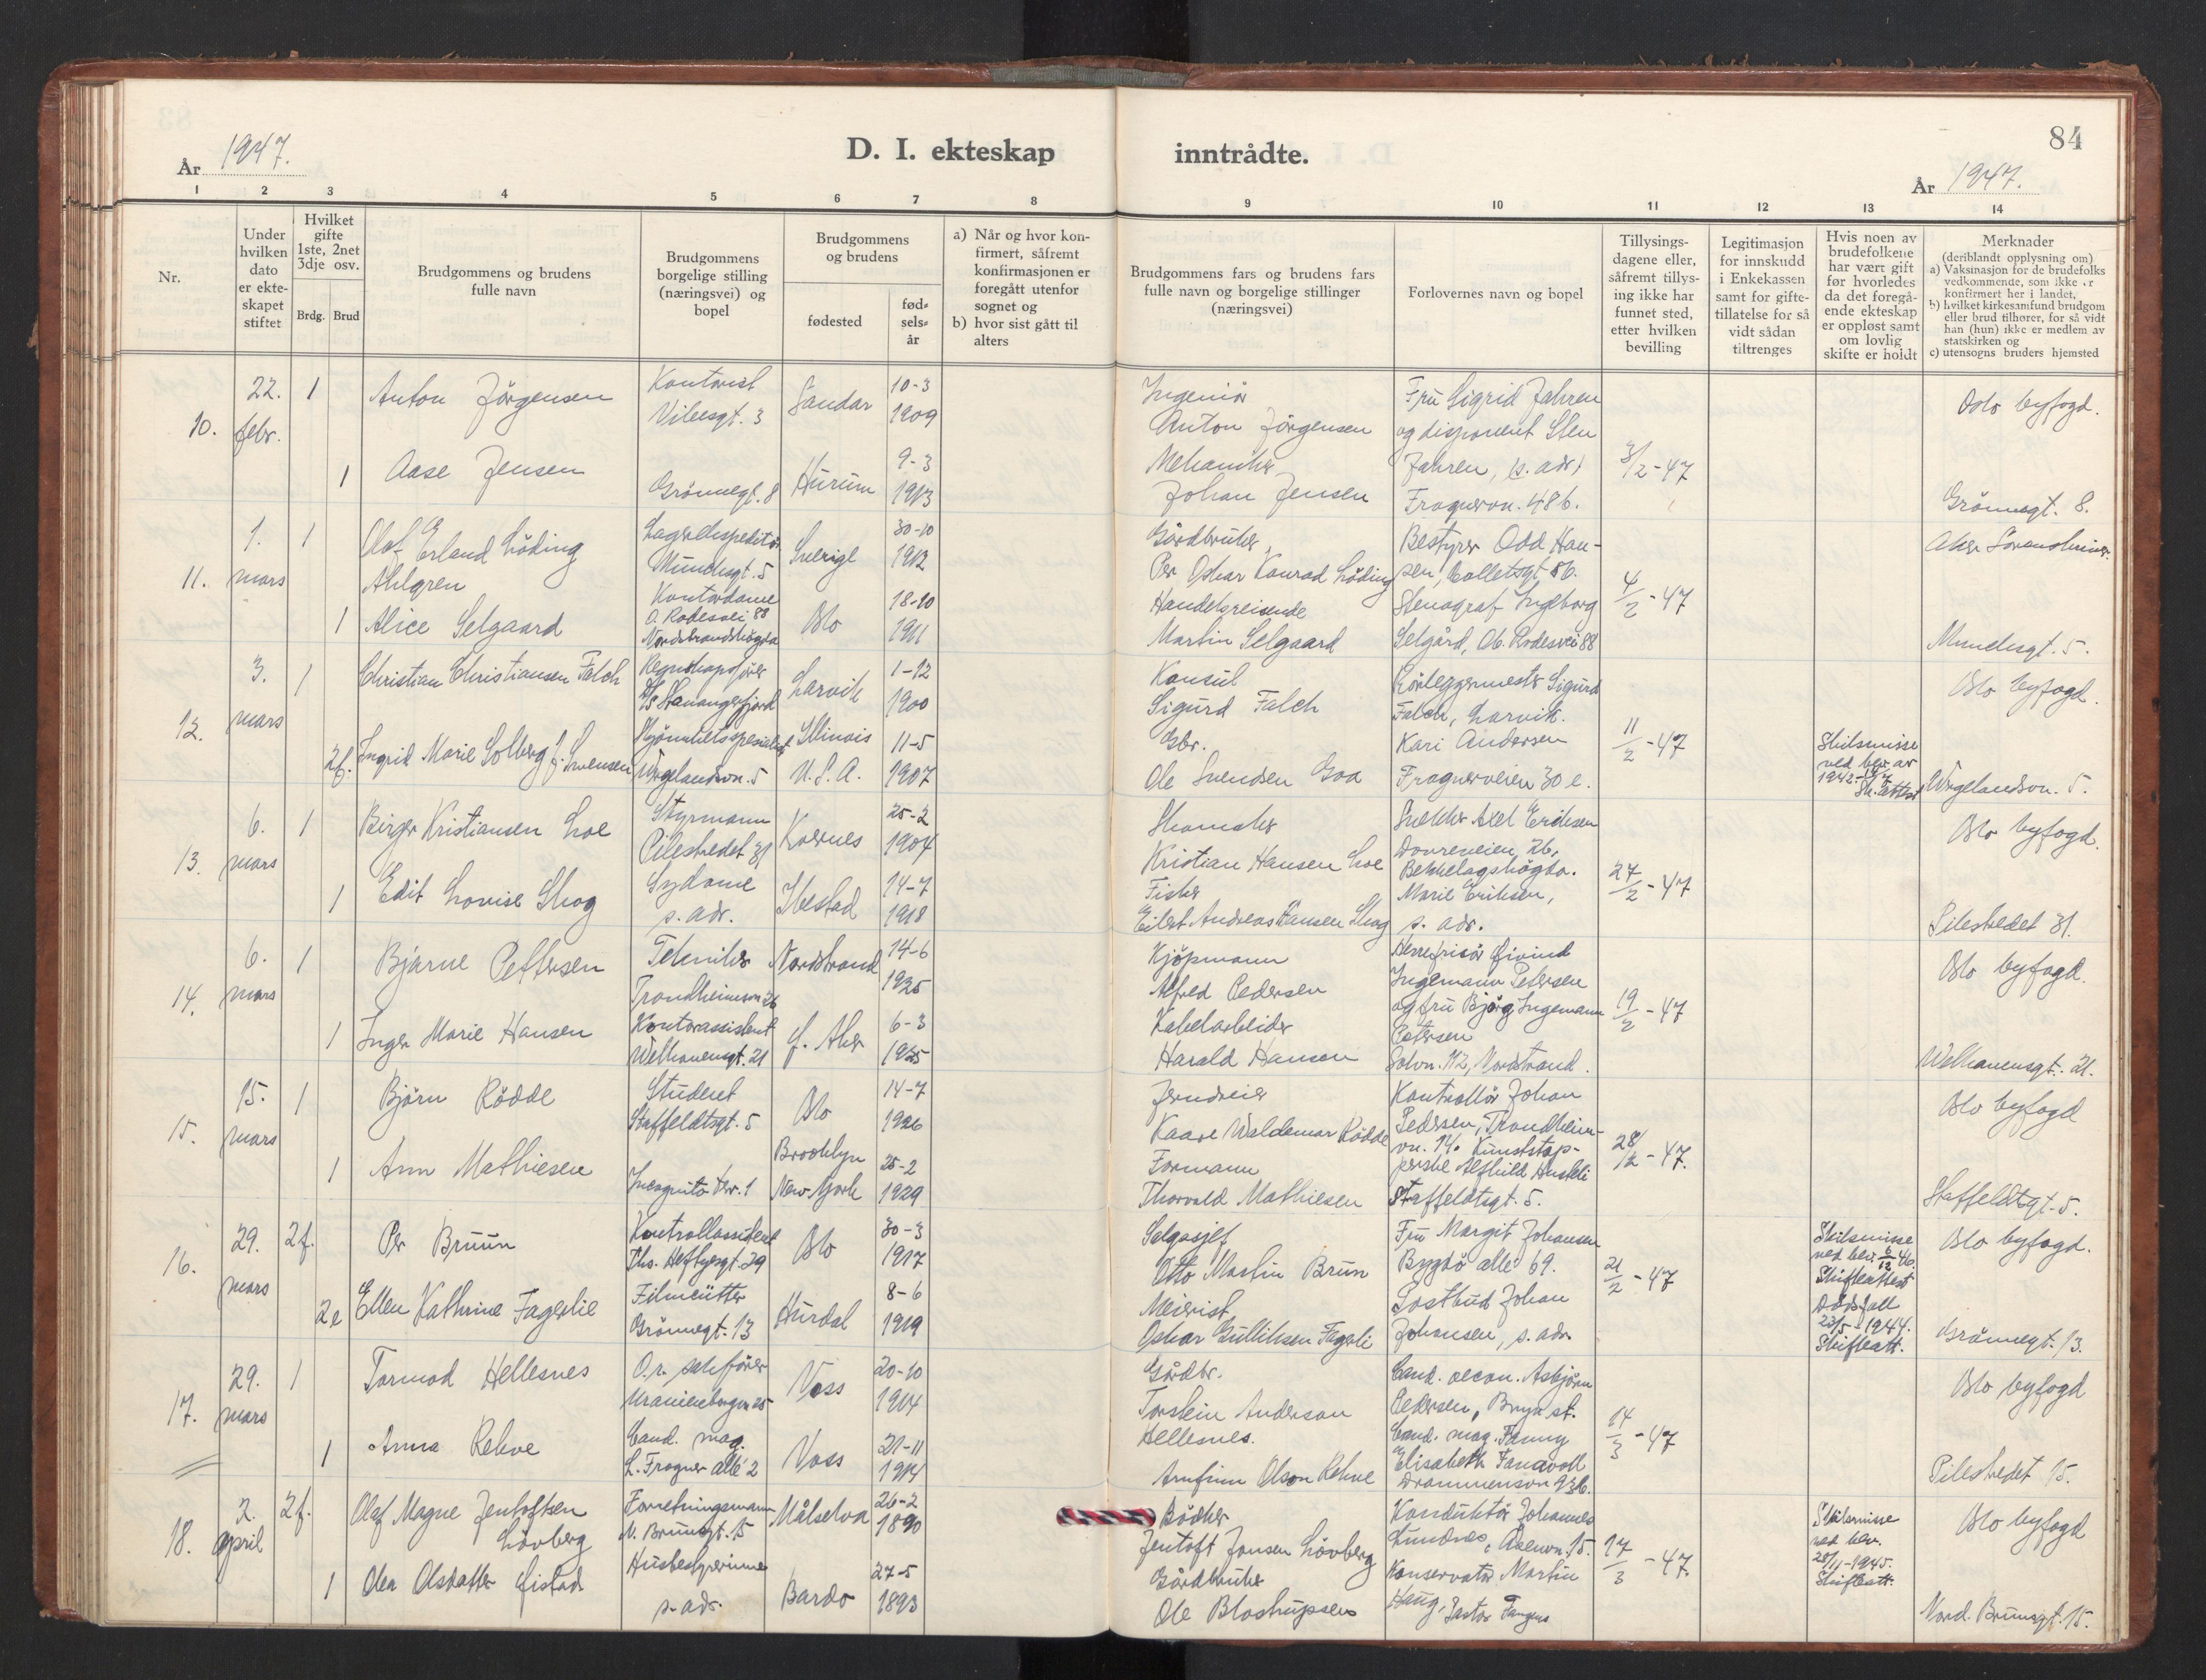 År 1947.
D. I. ekteskap inntrådte.
84
År 1947.
1 2 3 4 5 6 7 8 9 10 11 12 13 14
Nr.
Under
hvilken
dato
er ekte-
skapet
stiftet
Hvilket
gifte
1ste, 2net
3dje osv.
Brdg. Brud
Brudgommens og brudens
fulle navn
Brudgommens
borgelige stilling
(næringsvei) og
bopel
Brudgommens
og brudens
fødested
fød-
sels-
år
a) Når og hvor kon-
firmert, såfremt
konfirmasjonen er
foregått utenfor
sognet og
b) hvor sist gått til
alters
Brudgommens fars og brudens fars
fulle navn og borgelige stillinger
(næringsvei)
Forlovernes navn og bopel
Tillysings-
dagene eller,
såfremt tillys-
ing ikke har
funnet sted,
etter hvilken
bevilling
Legitimasjon
for innskudd
i Enkekassen
samt for gifte-
tillatelse for så
vidt sådan
tiltrenges
Hvis noen av
brudefolkene
har vært gift
før hvorledes
da det foregå-
ende ekteskap
er oppløst samt
om lovlig
skifte er holdt
Merknader
(deriblandt opplysning om)
a) Vaksinasjon for de brudefolks
vedkommende, som ikke er
konfirmert her i landet,
b) hvilket kirkesamfund brudgom
eller brud tilhører, for så vidt
han (hun) ikke er medlem av
statskirken og
c) utensogns bruders hjemsted
10.
22.
febr.
1
Anton Jörgensen
Kontorist
Vibesgt. 3
Sandar
10-3
1909
Ingeniör
Anton Jörgensen
Fru Sigrid Jahren
og disponent Sten
Jahren, (s. adr)
Frognervn. 48b.
3/2-47
Oslo byfogd.
1
Aase Jensen
Grönnegt. 8
Hurum
9-3
1913
Mekaniker
Johan Jensen
Grönnegt. 8.
11.
1.
mars
1
Olof Erland Löding
Ahlgren
Lagerekspeditör
Munchsgt. 5
Sverige
30-10
1912
Gårdbruker
Per Oskar Konrad Löding
Bestyrer Odd Han-
sen, Colletsgt. 86.
Stenograf Ingeborg
Selgård, Ob. Rodesvei 88
4/2-47
Aker Sorenskriver.
1
Alice Selgaard
Kontordame
O. Rodesvei 88
Nordstrandshögda
Oslo
18-10
1911
Handelsreisende
Martin Selgaard
Munchsgt. 5.
12.
3.
mars
1
Christian Christiansen Falch
Regnskapsförer
D/S Stavangerfjord
Larvik
1-12
1900
Konsul
Sigurd Falch
Rörleggermester Sigurd
Falch, Larvik.
Kari Andersen
Frognerveien 30 e.
11/2-47
Oslo byfogd.
2f.
Ingrid Marie Solberg f. Svensen
Skjönnhetsspesialist
Wergelandsvn. 5
Illinois
U.S.A.
11-5
1907
Gbr.
Ole Svendsen Goa
Skilsmisse
ved bev. av
Sk. attest
Wergelandsvn. 5.
13.
6.
mars
1
Birger Kristiansen Loe
Styrmann
Pilestredet 31
Kvernes
25-2
1904
Skomaker
Kristian Hansen Loe
Snekker Axel Eriksen
Dovreveien 26,
Bekkelagshögda.
Marie Eriksen,
s. adr.
27/2-47
Oslo byfogd.
1
Edit Lovise Skog
Sydame
s. adr.
Ibestad
14-7
1918
Fisker
Eilert Andreas Hansen Skog
Pilestredet 31.
14.
6.
mars
1
Bjarne Pettersen
Tekniker
Trondheimsvn 26
Nordstrand
14-6
1925
Kjöpmann
Alfred Pedersen
Herrefrisör Øivind
Ingemann Petersen
og fru Björg Ingemann
Petersen
Solvn. 112, Nordstrand.
19/2-47
Oslo byfogd.
1
Inger Marie Hansen
Kontorassistent
Welhavensgt. 21
f. Aker
6-3
1925
Kabelarbeider
Harald Hansen
Welhavensgt. 21.
15.
15.
mars
1
Björn Rödde
Student
Staffeldtsgt. 5
Oslo
14-7
1926
Kaare Waldemar Rödde
Kontrollör Johan
Pedersen, Trondheim-
vn. 14. Kunststop-
perske Alfhild Huskli
Staffeldtsgt. 5.
28/2-47.
Oslo byfogd
1
Ann Mathiesen
Incognito terr. 1
Brooklyn
New York
25-2
1929
Formann
Thorvald Mathiesen
Staffeldtsgt. 5.
16.
29.
mars
2f.
Per Bruun
Kontrollassistent
Ths. Heftyesgt. 29
Oslo
30-3
1917
Salgssjef
Otto Martin Brun
Fru Margit Johansen
Bygdö allé 69.
Postbud Johan
Johansen, s. adr.
21/2-47
Skilsmisse
ved bev. 6/12 46.
Skifteattest
Oslo byfogd.
2e
Ellen Kathrine Fagerlie
Filmcutter
Grönnegt. 13
Hurdal
8-6
1919
Meierist
Oskar Gulliksen Fagerli
Dödsfall
23/5-1944.
Skifteatt.
Grönnegt. 13.
17.
29.
mars
1
Tormod Hellesnes
O.r. sakförer
Uranienborgvn 25
Voss
20-10
1914
Gårdbr.
Torstein Anderson
Hellesnes.
Cand. oecon. Asbjörn
Pedersen, Bryn st.
Cand. mag. Fanny
Elisabeth Fanavoll
Drammensvn 93b.
14/3-47
Oslo byfogd
1
Anna Rekve
Cand. mag.
L. Frogner allé 2
Voss
21-11
1914
Arnfinn Olson Rekve
Pilestredet 15.
18.
2.
april
2f.
Olaf Magne Jentoftsen
Lövberg
Forretningsmann
N. Brunsgt. 15
Målselva
26-2
1890
Bödker
Jentoft Jonsen Lövberg
Konduktör Johannes
Lundnes, Åsenvn. 15.
Konservator Martin
Haug, Pastor Fangens
17/3-47.
Skilsmisse
ved bev.
28/11-1945.
Skifteatt.
Oslo byfogd
1
Olea Olsdatter Øistad
Husbestyrerinne
s. adr.
Bardo
27-5
1893
Gårdbruker
Ole Blostrupsen
Nord. Brunsgt. 15.